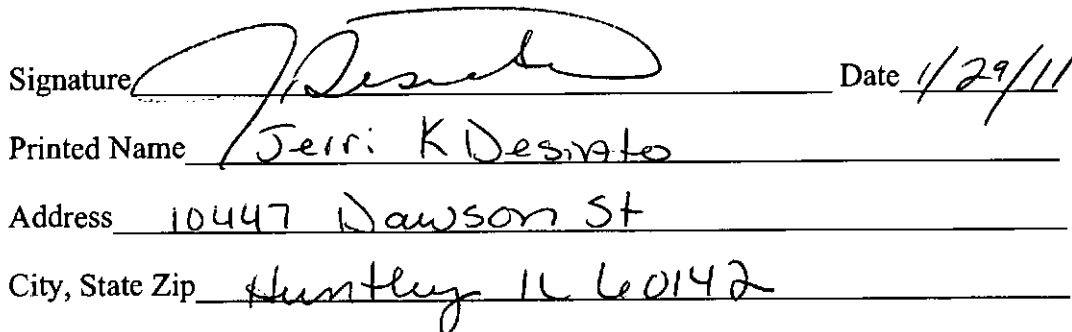 Signature J. Desinato Date 1/29/11
Printed Name Jerri K Desinato
Address 10447 Dawson St
City, State Zip Huntley IL 60142